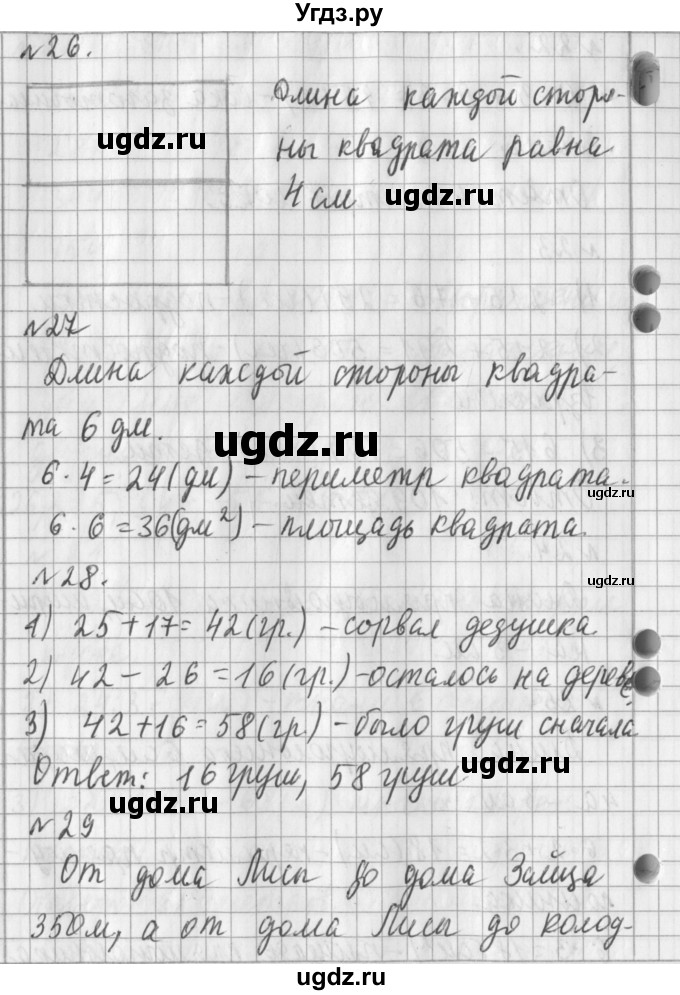 Угдз.ру
№26.
Длина каждой сторо-
ны квадрата равна
4 см
ugdz.ru
ugdz.ru
№27
Длина каждой стороны квадра-
та 6 дм.
ugdz.ru
6·4=24(дм) – периметр квадрата.
ugdz.ru
6·6=36(дм²) – площадь квадрата.
№28.
ugdz.ru
1) 25+17=42(гр.) – сорвал дедушка.
2) 42–26=16(гр.) – осталось на дереве
3) 42+16=58(гр.) – было груш сначала
Ответ: 16 груш, 58 груш
ugdz.ru
ugdz.ru
№29
От дома Лисы до дома Зайца
350м, а от дома Лисы до колод-
ugdz.ru